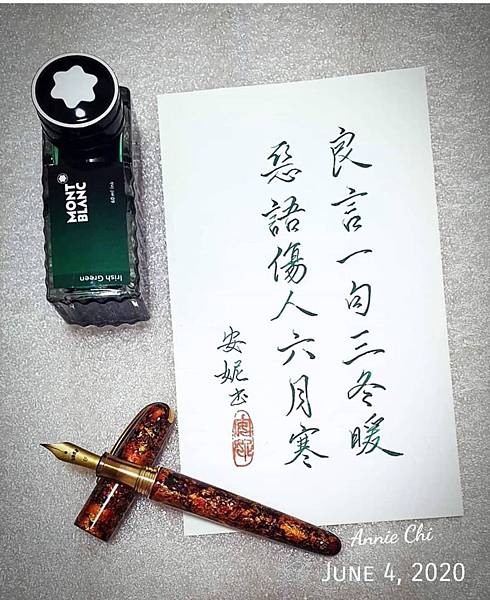 良言一句三冬暖
惡語傷人六月寒
安妮书
MONT
BLANC
60 ml ink
Irish Green
Annie Chi
JUNE 4, 2020